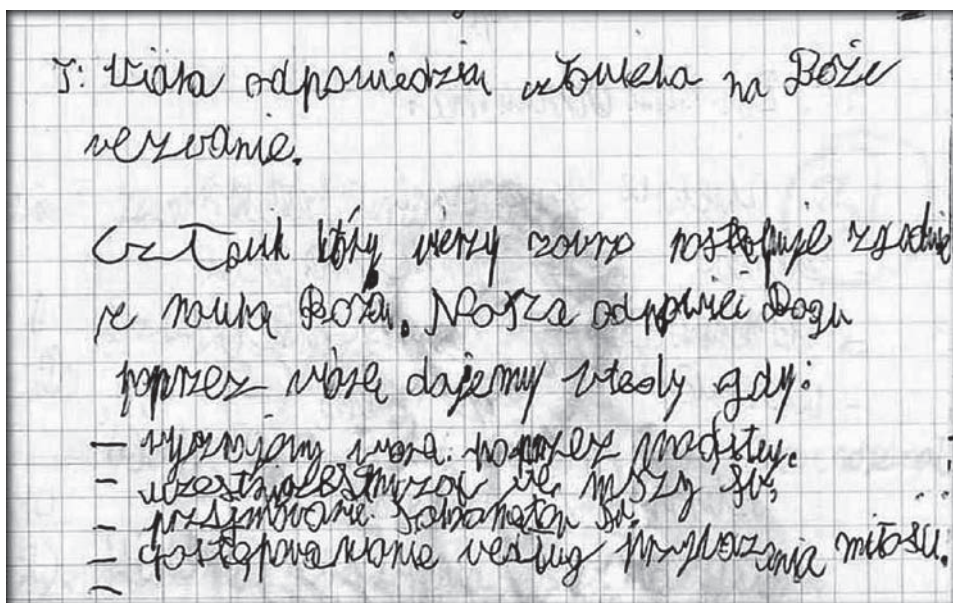 T: Wiara odpowiedzią człowieka na Boże
wezwanie.
Człouik który wierzy zawrze postępuje zgodnie
ze nauką Bożą. Nasza odpowieć Bogu
poprzez wiarę dajemy wtedy gdy:
– wyznajemy wiarę poprzez modlitwy.
– we mszy św.
– przyjmowanie sakramentów św.
– według przykazania miłości.
–